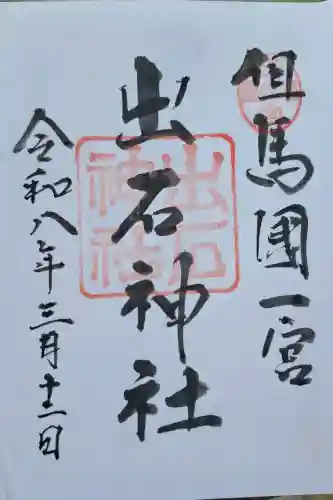 但馬國一宮
出石神社
令和八年三月十二日
出石神社